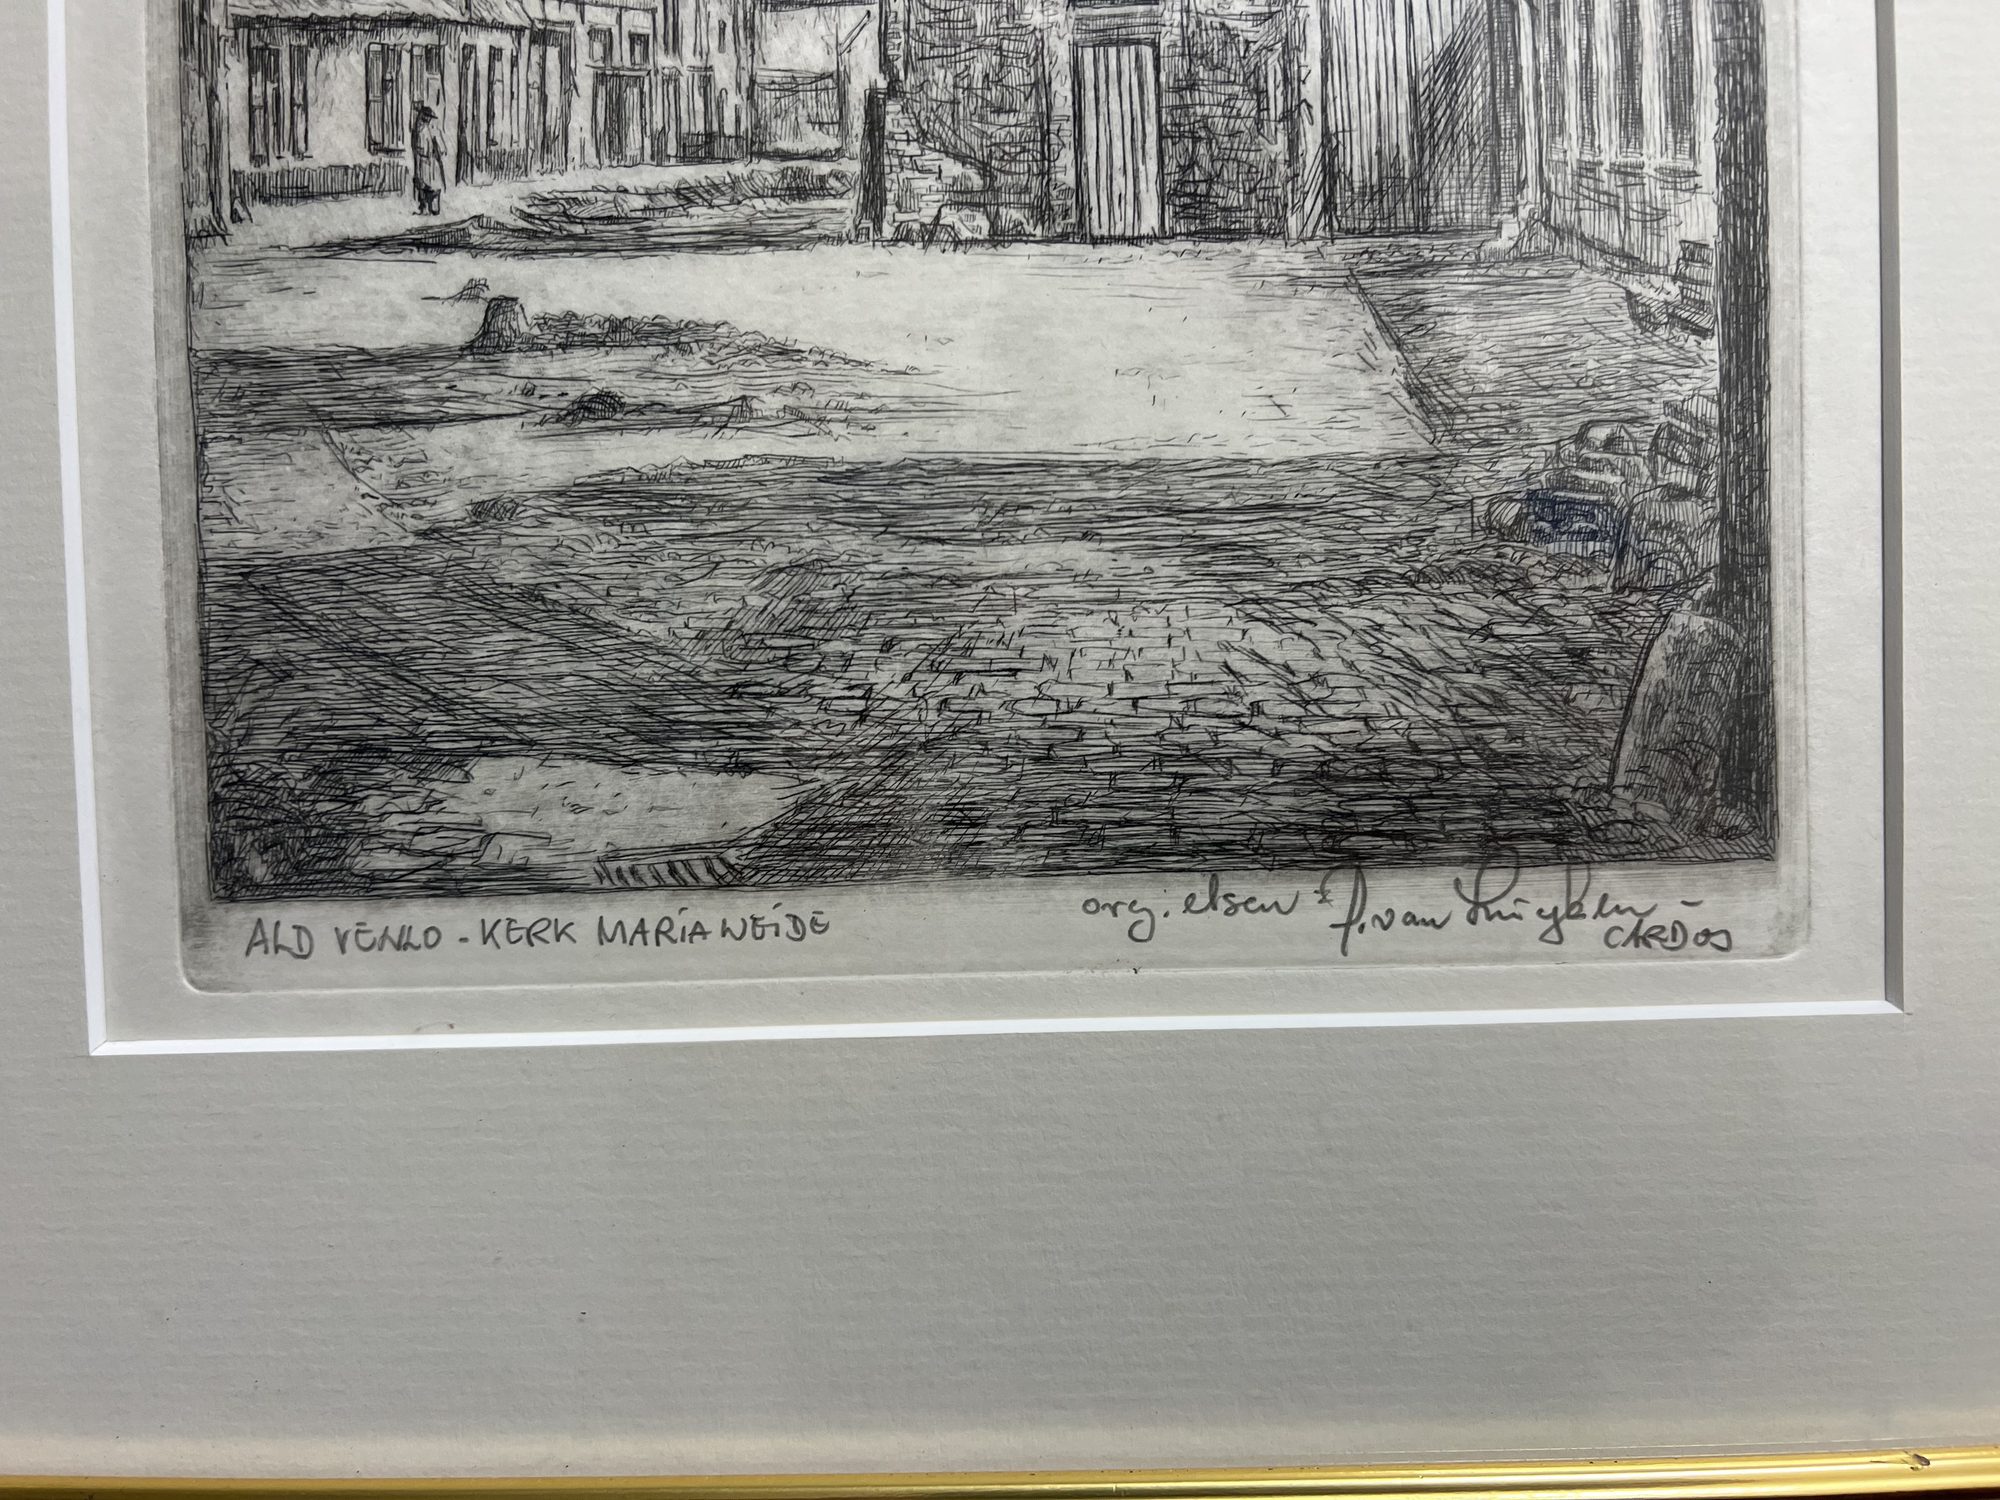 ALD VENLO - KERK MARIAWEIDE
org. etsen
J. van
CARDOS